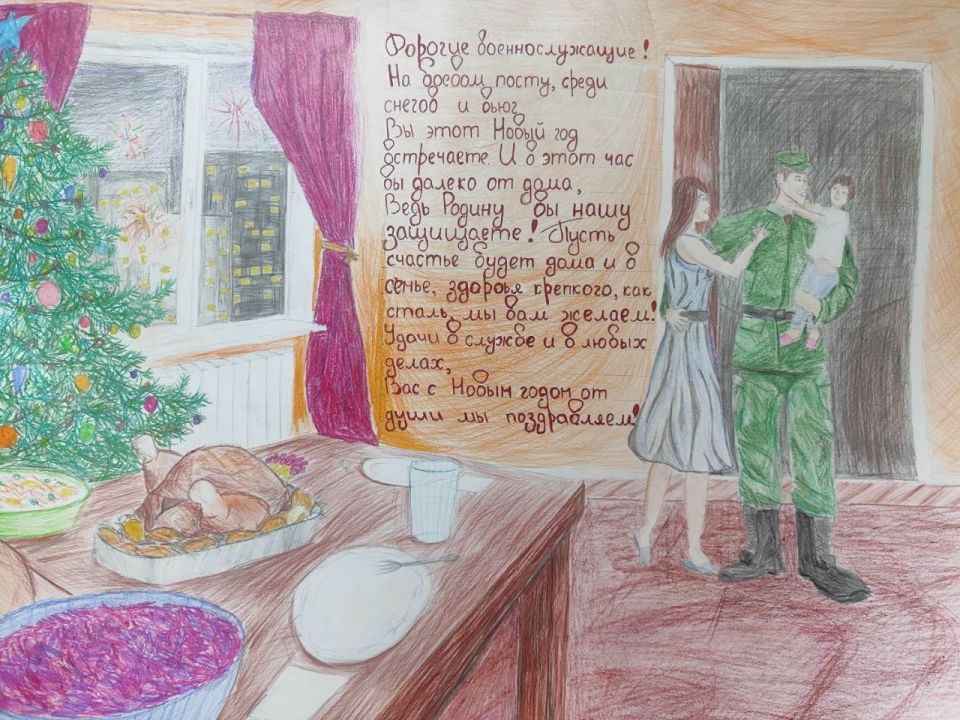 Дорогие военнослужащие!
На боевом посту, среди
снегов и вьюг
Вы этот Новый год
встречаете И в этот час
вы далеко от дома,
Ведь Родину вы нашу
защищаете! Пусть
счастье будет дома и в
семье, здоровья крепкого, как
сталь, мы вам желаем!
Удачи в службе и в любых
делах,
Вас с Новым годом от
души мы поздравляем!